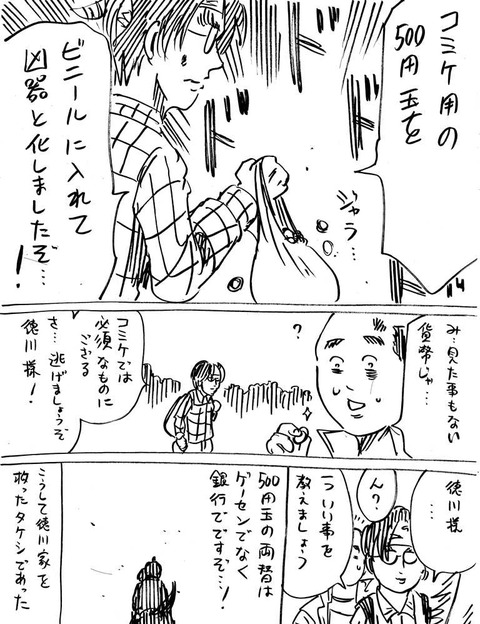 コミケ用の
500円玉を
ビニールに入れて
凶器と化しましたぞ…!
ジャラ…
み…見た事もない
貨幣じゃ…
?
コミケでは
必須なものに
ござる
さ…逃げましょうぞ
徳川様!
徳川様
…
ん?
一ついい事を
教えましょう
500円玉の両替は
ゲーセンでなく
銀行でですぞ…!
こうして徳川家を
救ったタケシであった